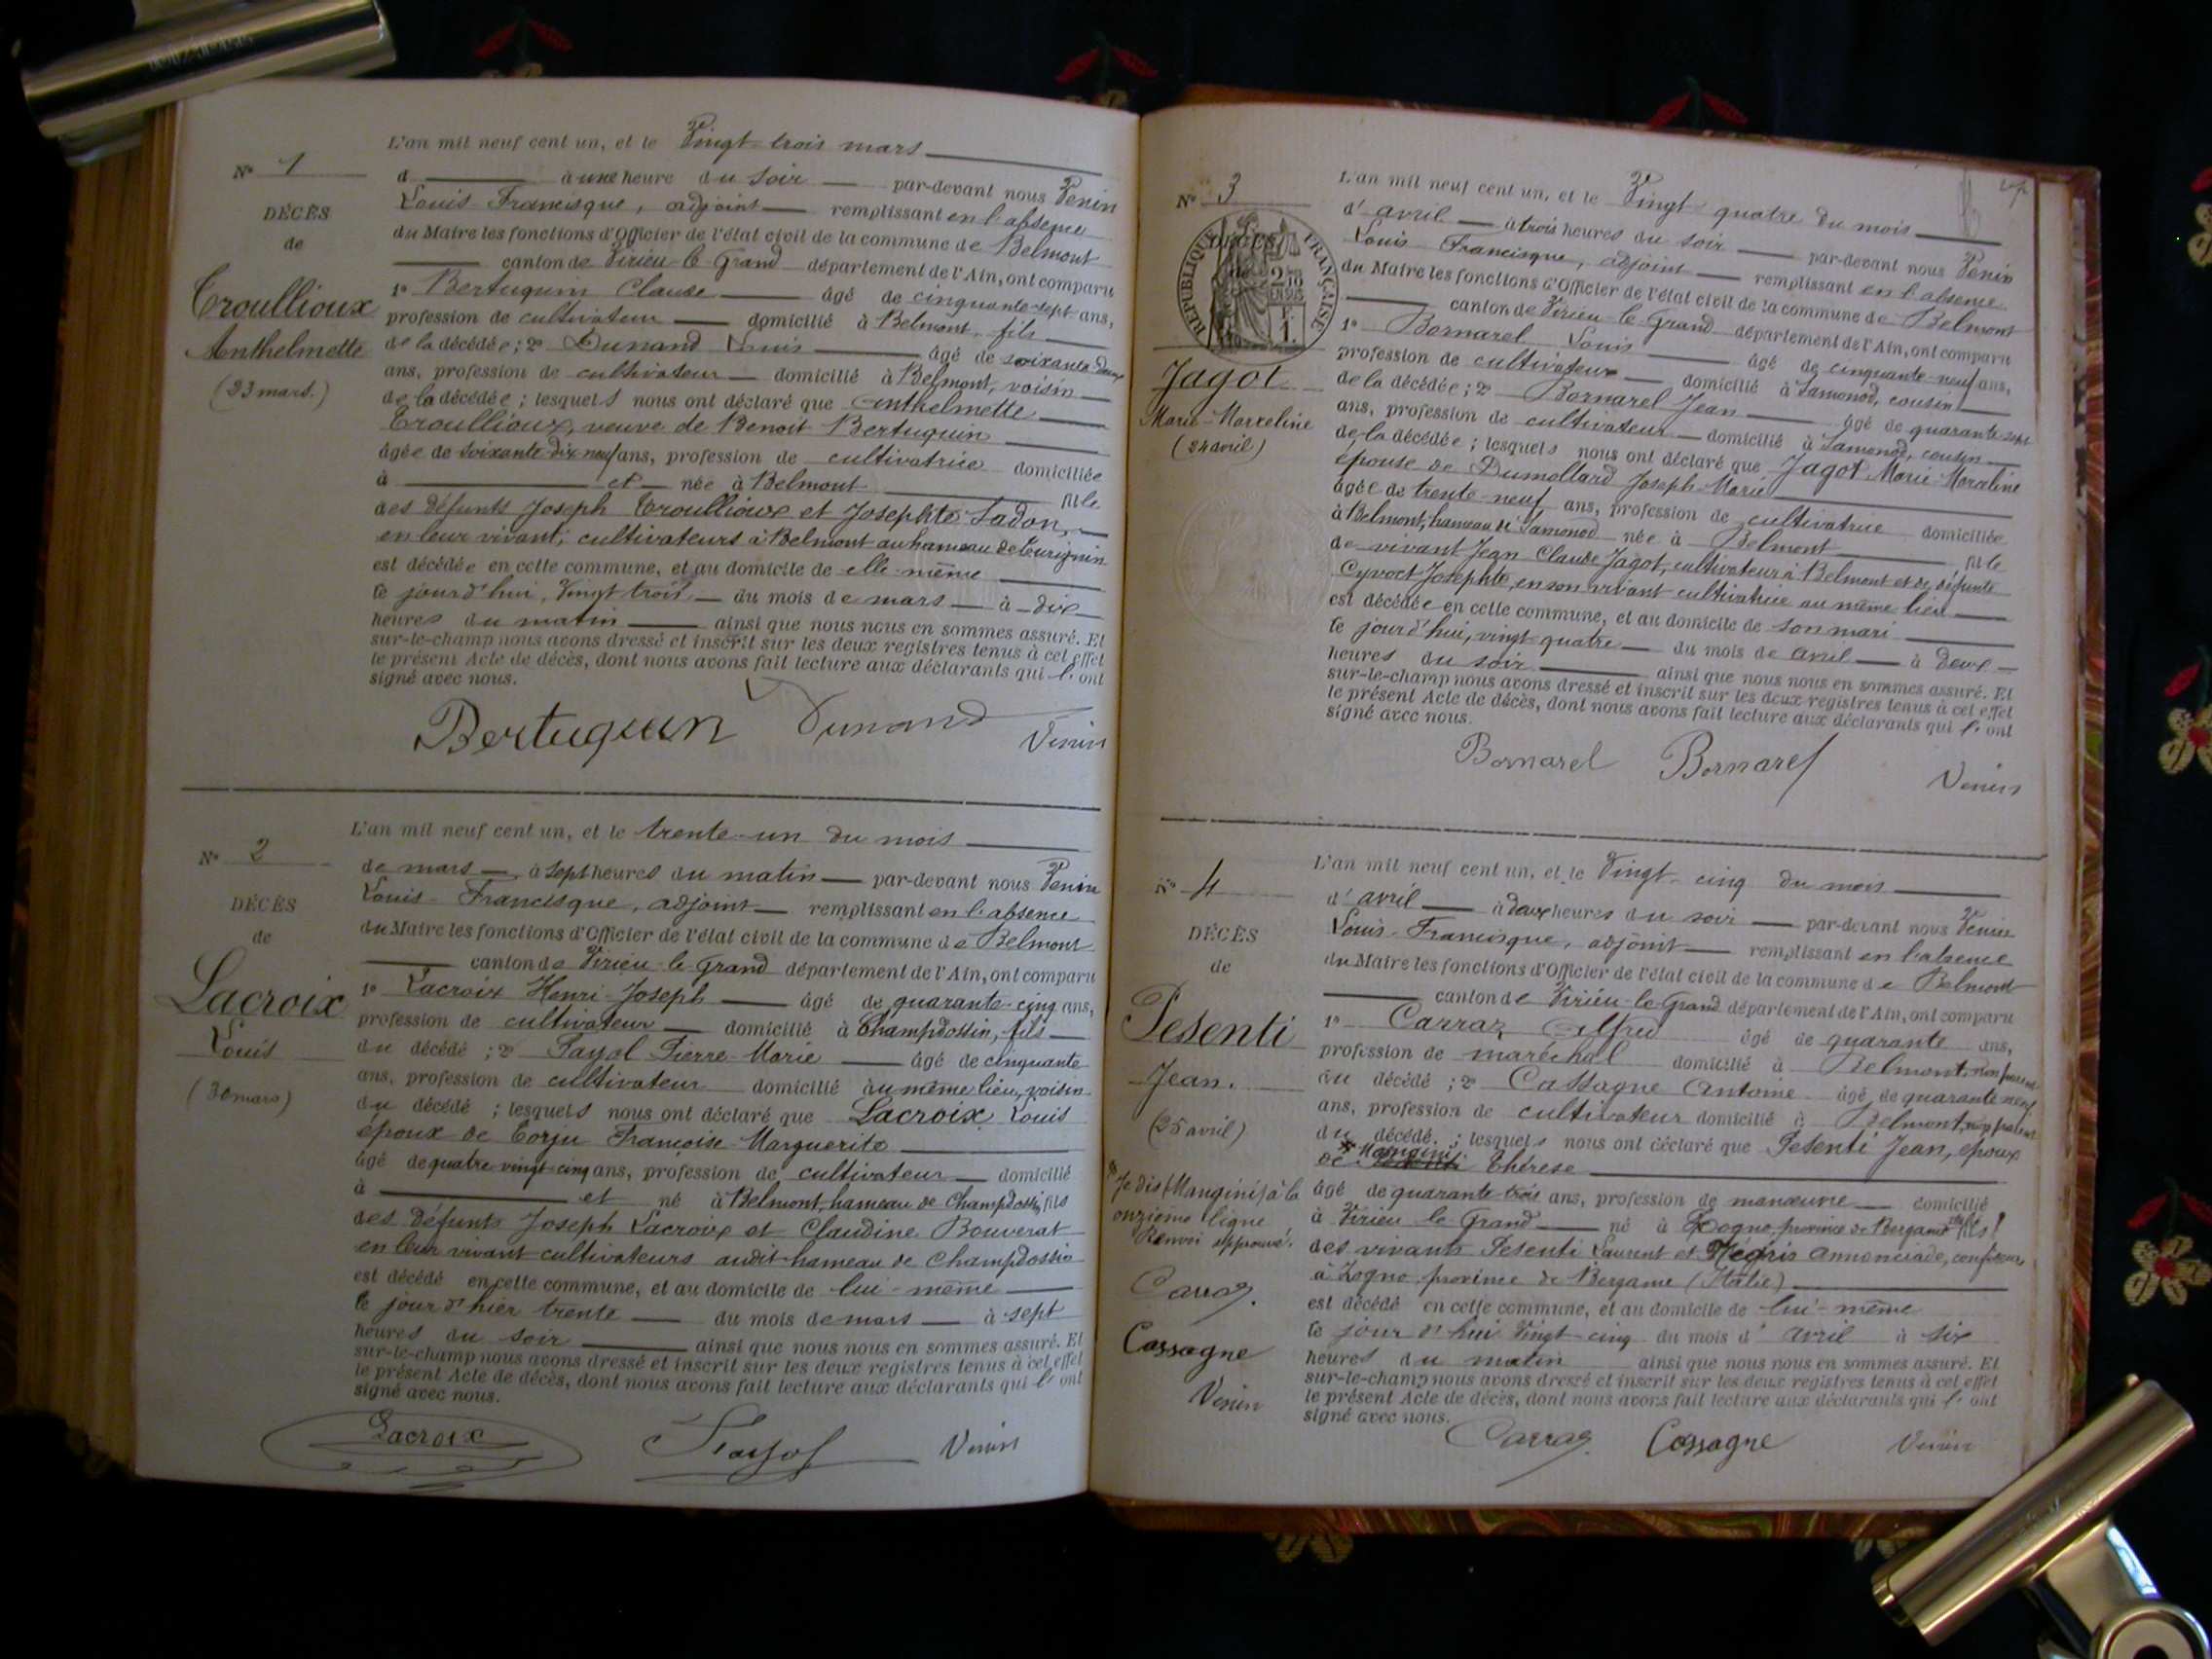 L'an mil neuf cent un, et le Vingt-trois mars
N° 1
d à une heure du soir par-devant nous Venin
Louis-Francisque, adjoint remplissant en l'absence
DÉCÈS
du Maire les fonctions d'Officier de l'état civil de la commune de Belmont
de
canton de Virieu-le-Grand département de l'Ain, ont comparu
Troullioux
1° Bertuguin Claude âgé de cinquante-sept ans,
profession de cultivateur domicilié à Belmont, fils
Anthelmette
de la décédée; 2° Dunand Louis âgé de soixante-deux
ans, profession de cultivateur domicilié à Belmont, voisin
(23 mars.)
de la décédée; lesquels nous ont déclaré que Anthelmette
Troullioux, veuve de Benoit Bertuguin
âgée de soixante-dix-neuf ans, profession de cultivatrice domiciliée
à et née à Belmont fille
des défunts Joseph Troullioux et Josephte Sadon,
en leur vivant, cultivateurs à Belmont au hameau de
est décédée en cette commune, et au domicile de elle-même
le jour d'hui, Vingt trois du mois de mars à dix
heures du matin ainsi que nous nous en sommes assuré. Et
sur-le-champ nous avons dressé et inscrit sur les deux registres tenus à cet effet
le présent Acte de décès, dont nous avons fait lecture aux déclarants qui l'ont
signé avec nous.
Bertuguin Dunand Venin
L'an mil neuf cent un, et le trente-un du mois
N° 2
de mars à sept heures du matin par-devant nous Venin
Louis-Francisque, adjoint remplissant en l'absence
DÉCÈS
du Maire les fonctions d'Officier de l'état civil de la commune de Belmont
de
canton de Virieu-le-Grand département de l'Ain, ont comparu
Lacroix
1° Lacroix Henri-Joseph âgé de quarante-cinq ans,
profession de cultivateur domicilié à Champdossin, fils
Louis
du décédé; 2° Payol Pierre-Marie âgé de cinquante
ans, profession de cultivateur domicilié au même lieu, voisin
(30 mars)
du décédé; lesquels nous ont déclaré que Lacroix Louis
époux de Corju Françoise Marguerite
âgé de quatre-vingt-cinq ans, profession de cultivateur domicilié
à et né à Belmont, hameau de Champdossin fils
des défunts Joseph Lacroix et Claudine Bouverat
en leur vivant cultivateurs audit hameau de Champdossin
est décédé en cette commune, et au domicile de lui-même
le jour d'hier trente du mois de mars à sept
heures du soir ainsi que nous nous en sommes assuré. Et
sur-le-champ nous avons dressé et inscrit sur les deux registres tenus à cet effet
le présent Acte de décès, dont nous avons fait lecture aux déclarants qui l'ont
signé avec nous.
Lacroix Payol Venin
L'an mil neuf cent un, et le Vingt-quatre du mois
N° 3
d'avril à trois heures du soir par-devant nous Venin
Louis Francisque, adjoint remplissant en l'absence
DÉCÈS
de
RÉPUBLIQUE FRANÇAISE
du Maire les fonctions d'Officier de l'état civil de la commune de Belmont
canton de Virieu-le-Grand département de l'Ain, ont comparu
1° Bornarel Louis âgé de cinquante-neuf ans,
profession de cultivateur domicilié à Samonod, cousin
Jagot
de la décédée; 2° Bornarel Jean âgé de quarante-sept
Marie-Marceline
ans, profession de cultivateur domicilié à Samonod, cousin
(24 avril)
de la décédée; lesquels nous ont déclaré que Jagot Marie-Marceline
épouse de Dumollard Joseph-Marie
âgée de trente-neuf ans, profession de cultivatrice domiciliée
à Belmont, hameau de Samonod née à Belmont fille
de vivant Jean Claude Jagot, cultivateur à Belmont et de défunte
Cyvoct Josephte, en son vivant cultivatrice au même lieu
est décédée en cette commune, et au domicile de son mari
le jour d'hui, vingt-quatre du mois de avril à deux
heures du soir ainsi que nous nous en sommes assuré. Et
sur-le-champ nous avons dressé et inscrit sur les deux registres tenus à cet effet
le présent Acte de décès, dont nous avons fait lecture aux déclarants qui l'ont
signé avec nous.
Bornarel Bornarel Venin
L'an mil neuf cent un, et le Vingt-cinq du mois
N° 4
d'avril à deux heures du soir par-devant nous Venin
Louis-Francisque, adjoint remplissant en l'absence
DÉCÈS
du Maire les fonctions d'Officier de l'état civil de la commune de Belmont
de
canton de Virieu-le-Grand département de l'Ain, ont comparu
Pesenti
1° Carraz Alfred âgé de quarante ans,
profession de maréchal domicilié à Belmont, non parent
Jean.
du décédé; 2° Cassagne Antoine âgé de quarante neuf
ans, profession de cultivateur domicilié à Belmont, non parent
(25 avril)
du décédé; lesquels nous ont déclaré que Pesenti Jean, époux
de Mangini Thérèse
Je dis (Mangini) à la
onzième ligne
Renvoi approuvé.
âgé de quarante-trois ans, profession de manœuvre domicilié
à Virieu-le-Grand né à Zogno, province de Bergame fils
des vivants Pesenti Laurent et Annonciade,
à Zogno province de Bergame (Italie)
Carraz.
est décédé en cette commune, et au domicile de lui-même
le jour d'hui Vingt-cinq du mois d'avril à six
Cassagne
heures du matin ainsi que nous nous en sommes assuré. Et
sur-le-champ nous avons dressé et inscrit sur les deux registres tenus à cet effet
Venin
le présent Acte de décès, dont nous avons fait lecture aux déclarants qui l'ont
signé avec nous.
Carraz Cassagne Venin